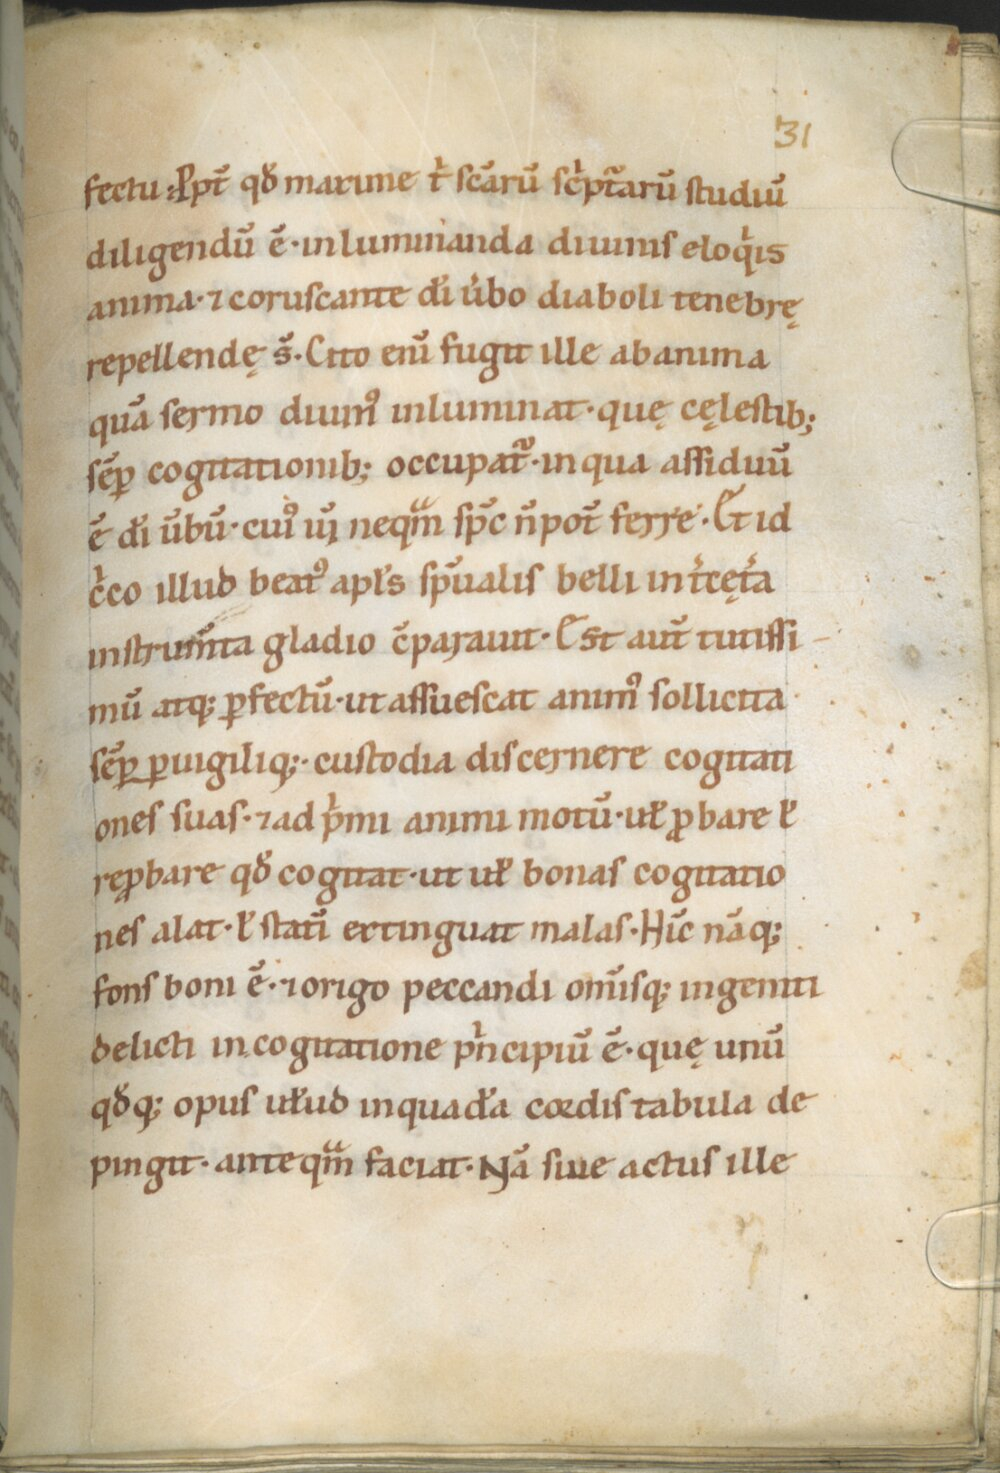 31
fectu: Ppt̄ qđ maxime t̓ scārū scͥptarū studiū
diligendū ē· inluminanda diuinis eloqͥis
anima· ⁊ coruscante dī ūbo diaboli tenebrę
repellendę s̄· Cito enī fugit ille ab anima
quā sermo diuinꝰ inluminat· quę cęlestib;
sēꝑ cogitationib; occupat᷑· in qua assiduū
ē dī ūbū· cuiꝰ uī neqͣm sp̄c n̄ pot̄ ferre· Et id
cͥco illud beatꝰ apłs sp̄ualis belli int̓cęt̓a
instrum̄ta gladio c̄parauit· Est aut̄ tutissi-
mū atq; ꝑfectū· ut assuescat animꝰ sollicita
sēꝑ ꝑuigiliq;· custodia discernere cogitati
ones suas· ⁊ ad pͥmi animi motū· uł ꝓbare ł
reꝓbare qđ cogitat· ut uł bonas cogitatio
nes alat· ł statī extinguat malas· Hīc nāq;
fons boni ē· ⁊ origo peccandi omīsq; ingeniti
delicti in cogitatione pͥncipiū ē· quę unū
qđq; opus uł ud in quadā cordis tabula de
pingit· anteqͣm faciat· Nā siue actus ille